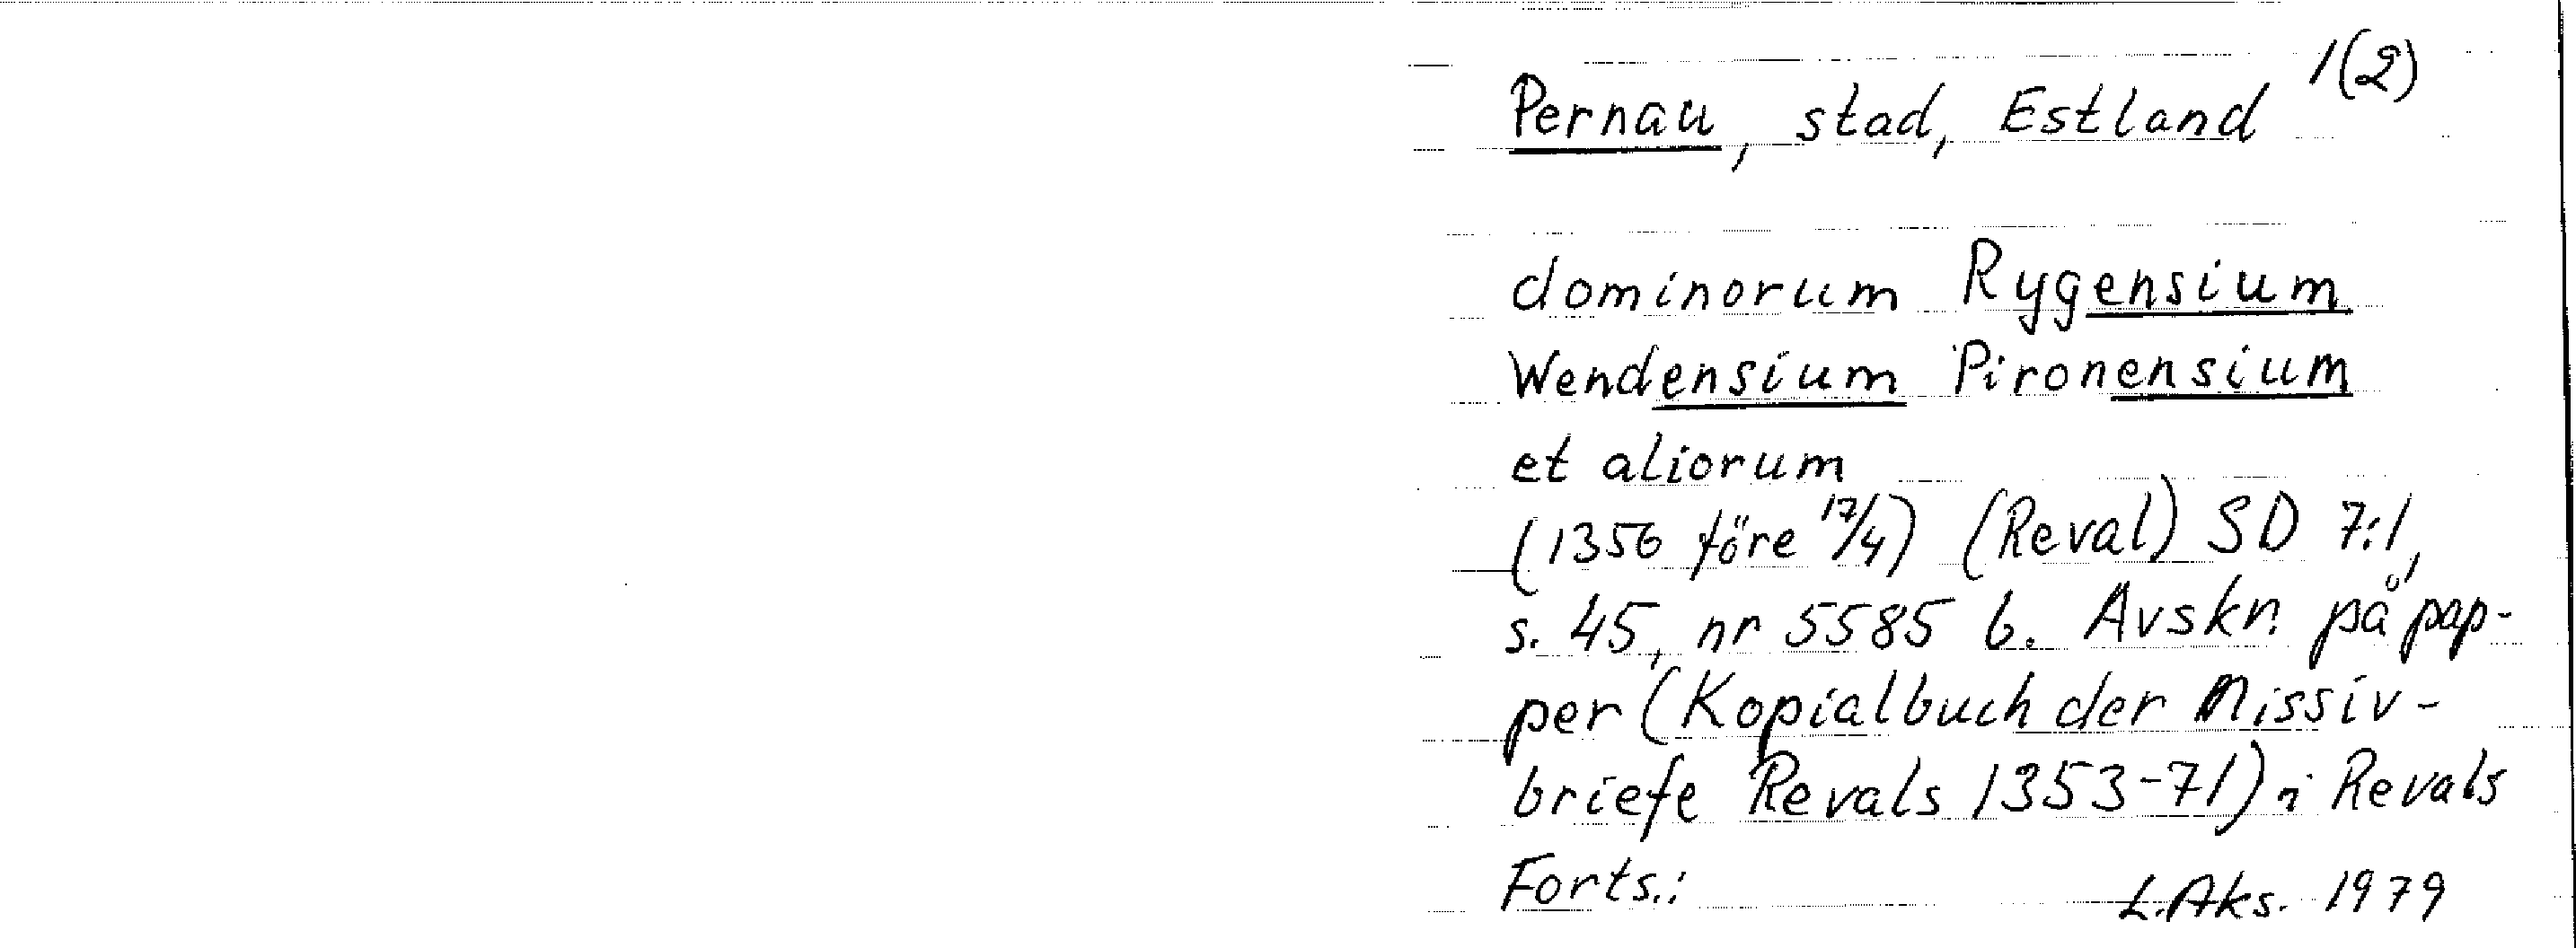 1(2)
Pernau, stad, Estland
dominorum Rygensium
Wendensium Pironensium
et aliorum
(1356 före 17/4) (Reval) SD 7:1,
s. 45, nr 5585 b. Avskr. på pap-
per (Kopialbuch der Missiv-
briefe Revals 1353-71) i Revals
Forts.: L.Aks. 1979